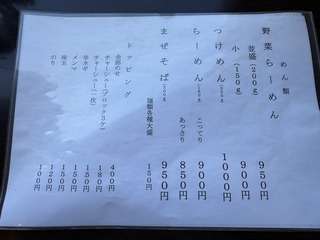 めん類
野菜らーめん
並盛(200g) 950円
小(150g) 900円
つけめん 1000円
らーめん こってり 900円
あっさり 850円
まぜそば 950円
麺類各種大盛 150円
トッピング
全部のせ 400円
チャーシュー(ブロック3ケ) 180円
チャーシュー(一枚) 150円
辛ネギ 150円
メンマ 150円
味玉 120円
のり 100円